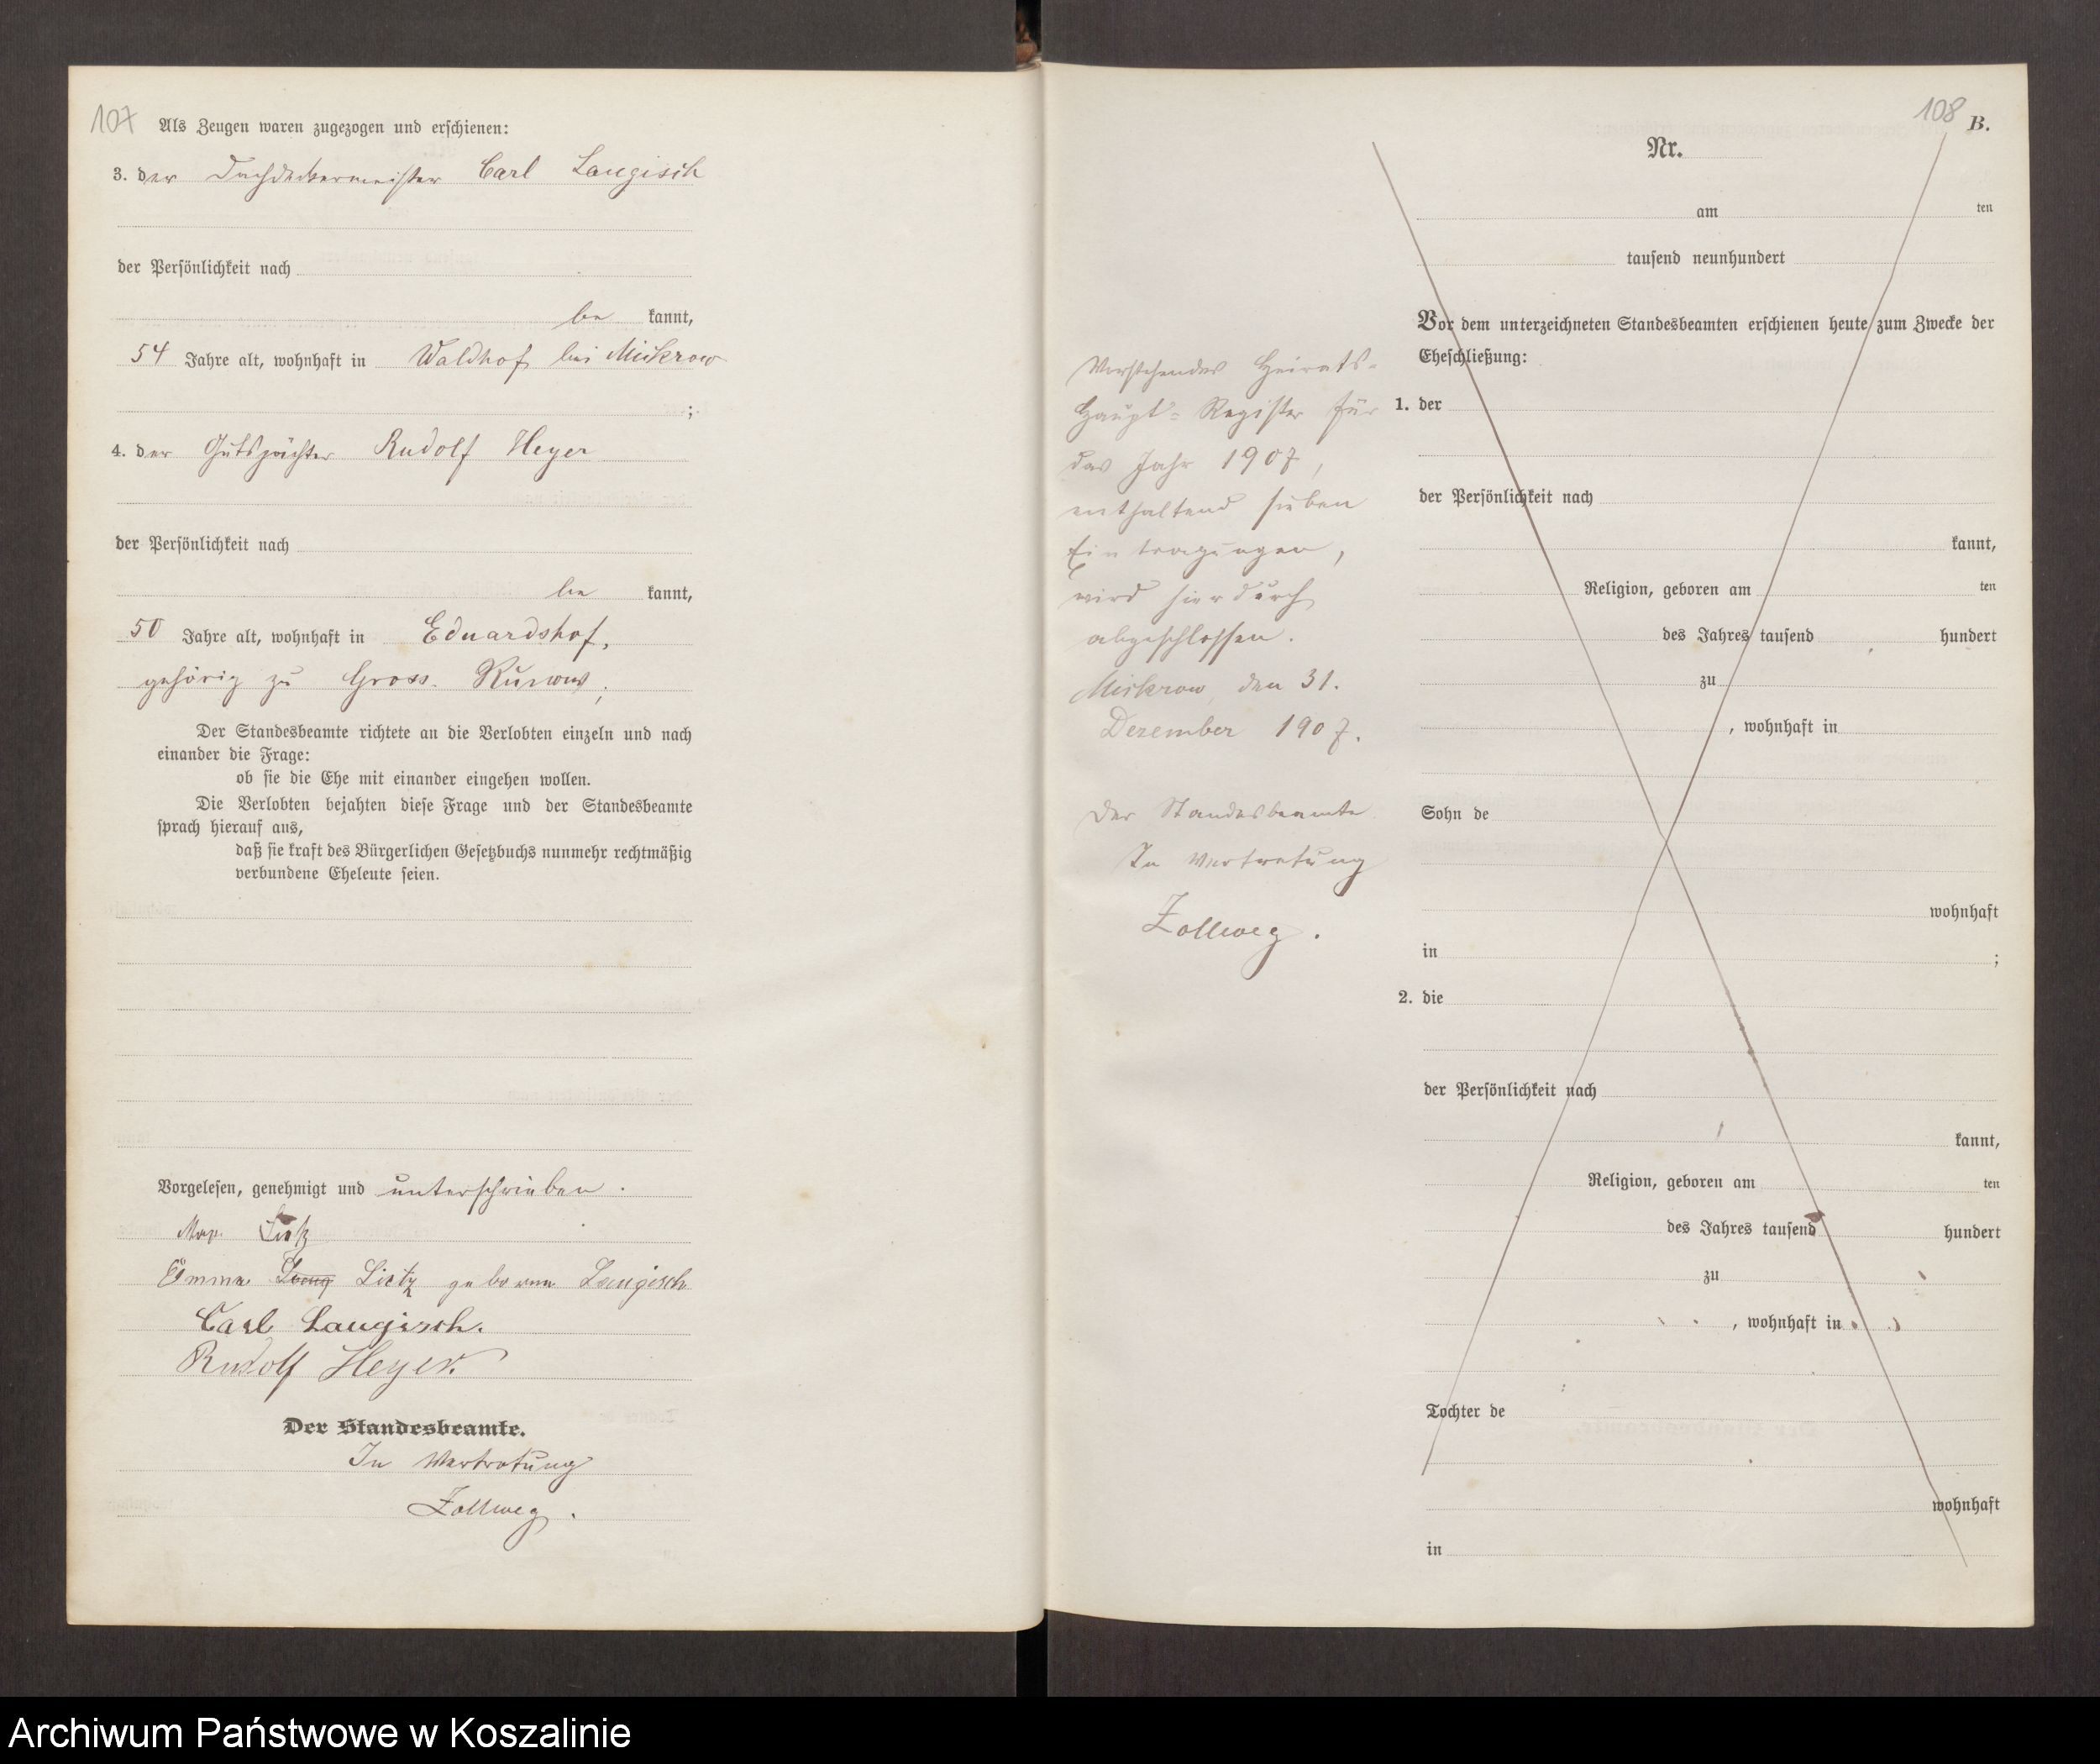 107
Als Zeugen waren zugezogen und erschienen:
3. der Dachdeckermeister Carl Laugisch
der Persönlichkeit nach
be kannt,
54 Jahre alt, wohnhaft in Waldhof bei Mickrow
;
4. der Gutspächter Rudolf Heyer
der Persönlichkeit nach
be kannt,
50 Jahre alt, wohnhaft in Eduardshof,
gehörig zu Gross-Runow;
Der Standesbeamte richtete an die Verlobten einzeln und nach
einander die Frage:
ob sie die Ehe mit einander eingehen wollen.
Die Verlobten bejahten diese Frage und der Standesbeamte
sprach hierauf aus,
daß sie kraft des Bürgerlichen Gesetzbuchs nunmehr rechtmäßig
verbundene Eheleute seien.
Vorgelesen, genehmigt und unterschrieben.
Lietz
Emma Laug Lietz geborene Laugisch
Carl Laugisch.
Rudolf Heyer.
Der Standesbeamte.
In Vertretung
Zollweg.
108
B.
Nr.
am ten
tausend neunhundert
Vor dem unterzeichneten Standesbeamten erschienen heute zum Zwecke der
Eheschließung:
1. der
der Persönlichkeit nach
kannt,
Religion, geboren am ten
des Jahres tausend hundert
zu
, wohnhaft in
Sohn de
wohnhaft
in ;
2. die
der Persönlichkeit nach
kannt,
Religion, geboren am ten
des Jahres tausend hundert
zu
, wohnhaft in
Tochter de
wohnhaft
in
Vorstehendes Heirats-
Haupt-Register für
das Jahr 1907,
enthaltend sieben
Eintragungen,
wird hierdurch
abgeschlossen.
Mickrow, den 31.
Dezember 1907.
Der Standesbeamte
In Vertretung
Zollweg.
Archiwum Państwowe w Koszalinie